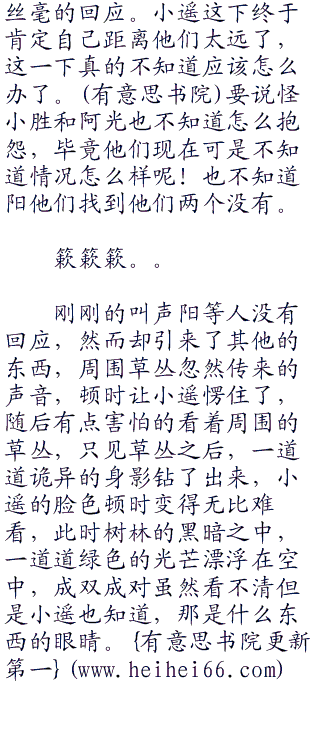 丝毫的回应。小遥这下终于
肯定自己距离他们太远了，
这一下真的不知道应该怎么
办了。(有意思书院)要说怪
小胜和阿光也不知道怎么抱
怨，毕竟他们现在可是不知
道情况怎么样呢！也不知道
阳他们找到他们两个没有。
簌簌簌。。
刚刚的叫声阳等人没有
回应，然而却引来了其他的
东西，周围草丛忽然传来的
声音，顿时让小遥愣住了，
随后有点害怕的看着周围的
草丛，只见草丛之后，一道
道诡异的身影钻了出来，小
遥的脸色顿时变得无比难
看，此时树林的黑暗之中，
一道道绿色的光芒漂浮在空
中，成双成对虽然看不清但
是小遥也知道，那是什么东
西的眼睛。{有意思书院更新
第一}(www.heihei66.com)